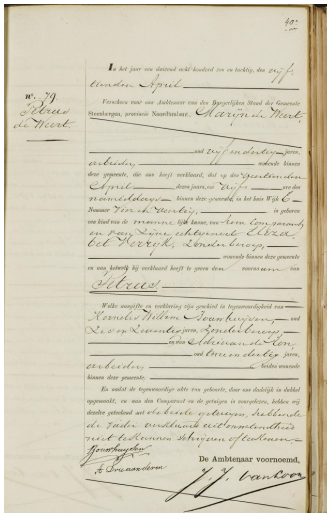 40
In het jaar een duizend acht honderd zes en tachtig, den vijf
tienden April
N°. 79.
Petrus
de Weert.
Verscheen voor ons Ambtenaar van den Burgerlijken Stand der Gemeente
Steenbergen, provincie Noordbrabant, Marijn de Weert,
oud vijf en dertig jaren,
arbeider, wonende binnen
deze gemeente, die ons heeft verklaard, dat op den veertienden
April dezes jaars, ten vijf ure des
namiddags binnen deze gemeente, in het huis Wijk E
Nommer Vier en veertig, is geboren
een kind van de mannelijke kunne, van hem Comparant
en van zijne echtgenoote
zonder beroep,
wonende binnen deze gemeente
en aan hetwelk hij verklaard heeft te geven den voornaam van
Petrus
Welke aangifte en verklaring zijn geschied in tegenwoordigheid van
Kornelis Willem oud
jaren, zonder beroep,
en van Adriaan de
oud twee en dertig jaren,
arbeider, beiden wonende
binnen deze gemeente
En nadat de tegenwoordige akte van geboorte, door ons dadelijk in dubbel
opgemaakt, en aan den Comparant en de getuigen is voorgelezen, hebben wij
dezelve geteekend met de beide getuigen, hebbende
de vader verklaard uit onwetendheid
niet te kunnen schrijven of teekenen
De Ambtenaar voornoemd,
J. J. van Loon